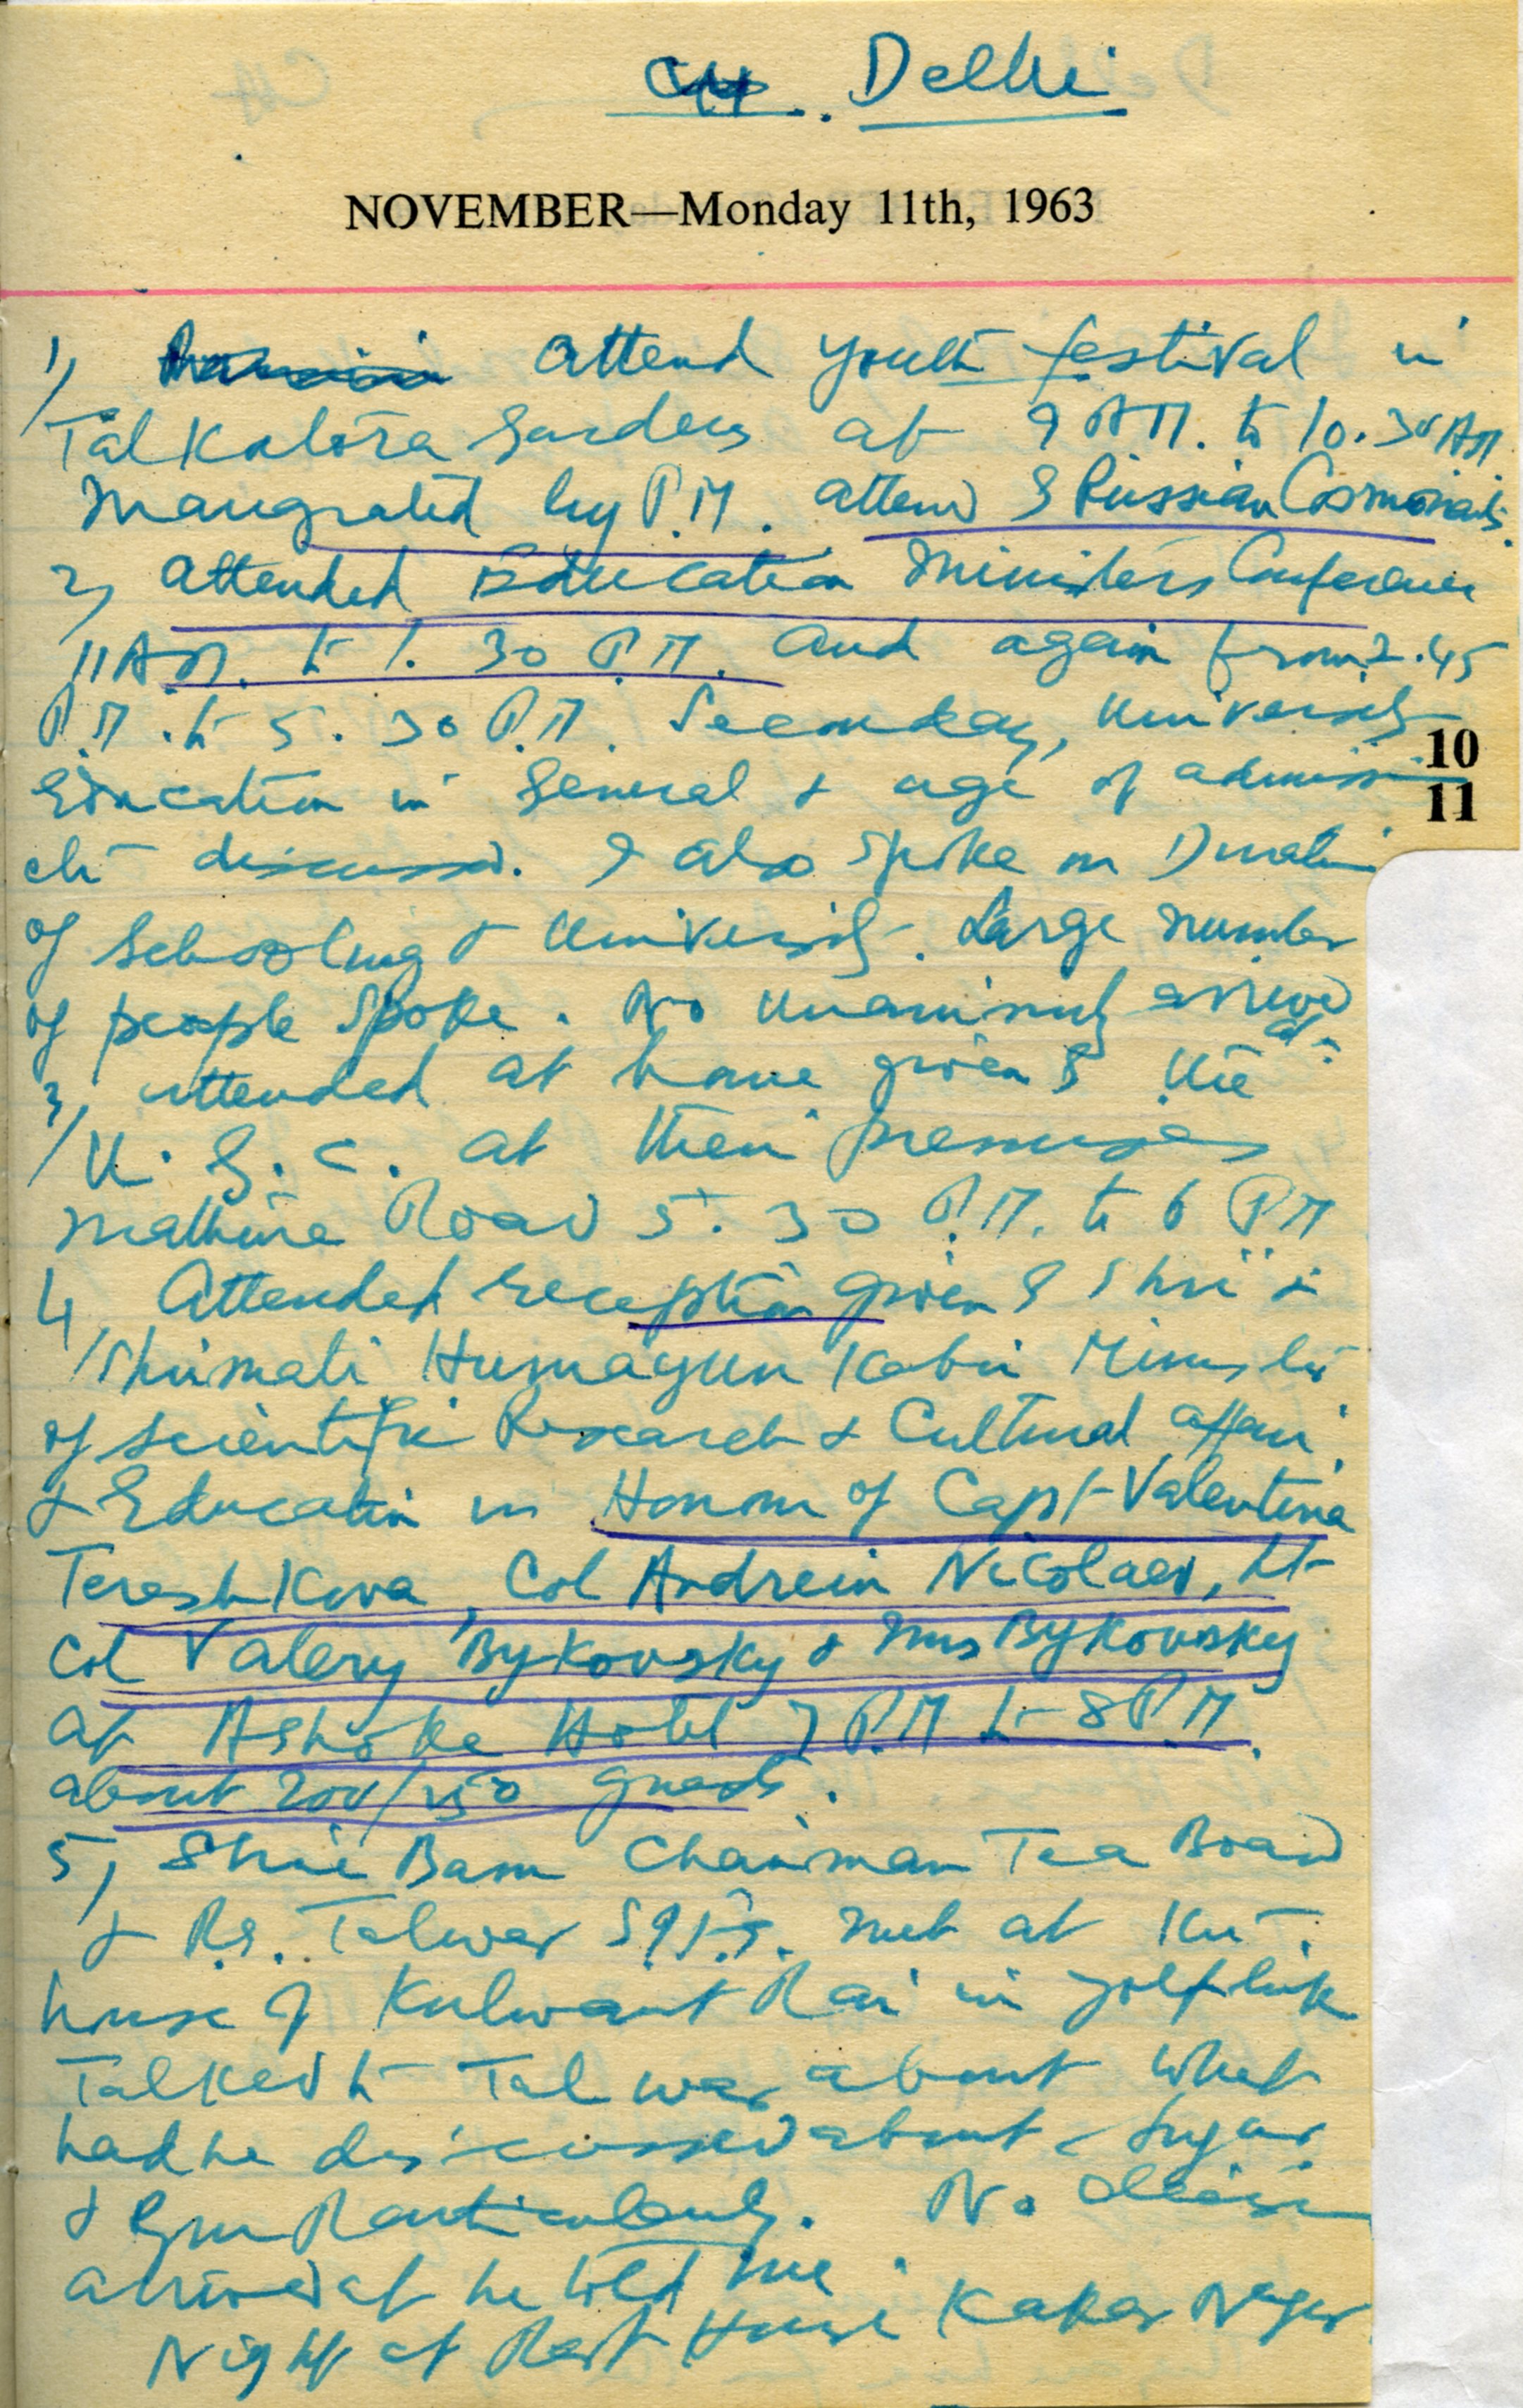 Delhi
NOVEMBER—Monday 11th, 1963
1) attend youth festival in
Talkatora Gardens at 9 AM. to 10.30 AM.
Inaugrated by P.M. attend 3 Russian Cosmonauts.
2) attended Education Ministers Conference
11 A.M. to 1.30 P.M. and again from 2.45
P.M. to 5.30 P.M. Secondary, University
10
Education in General & age of admiss
11
etc discussed. I also spoke on Duration
of schooling & University. Large number
of people spoke. No unanimity arrived
at.
3) attended at home given by the
U.G.C. at their premises
Mathura Road 5.30 P.M. to 6 PM
4) Attended reception given by Shri &
Shrimati Humayun Kabir Minister
of Scientific Research & Cultural affair
& Education in Honour of Capt Valentina
Tereshkova, Col Andrein Nicolaev, Lt
Col Valery Bykovsky & Mrs Bykovsky
at Ashoka Hotel 7 P.M to 8 P.M.
about 200/250 guests.
5) Shri Basu Chairman Tea Board
& R.S. Talwar met at the
house of Kulwant Rai in golf link
Talked to Talwar about what
had he discussed about Sugar
& Gur Particularly. No decision
arrived at he told me.
Night at Rest House Kaka Nagar